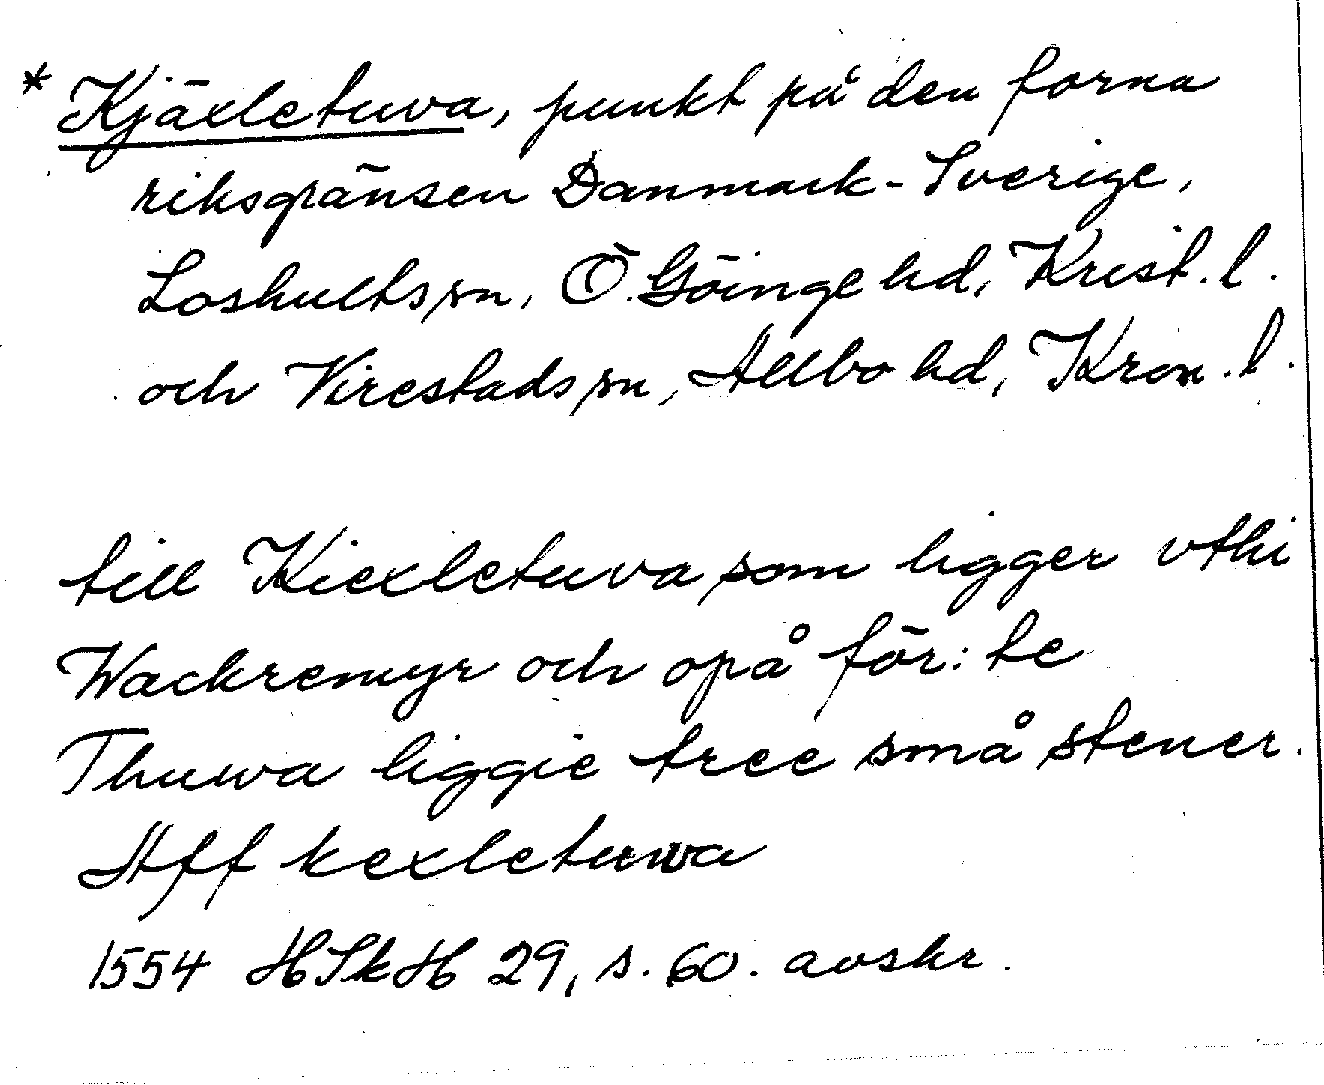 * Kjäxletuva, punkt på den forna
riksgränsen Danmark-Sverige,
Loshults sn, Ö. Göinge hd, Krist. l.
och Virestads sn, Allbo hd, Kron. l.
till Kiexletuva som ligger vthi
Wackremyr och opå för:te
Thuwa liggie tree små stener.
Aff kexletuwa
1554 HSkH 29, s. 60. avskr.